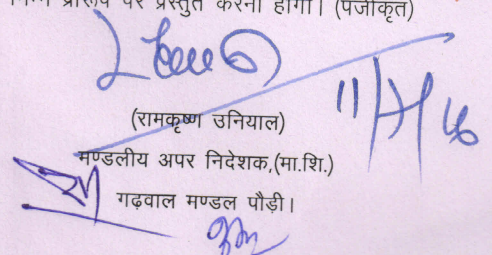 निम्न प्रारूप पर प्रस्तुत करना होगा। (पंजीकृत)
(रामकृष्ण उनियाल)
मण्डलीय अपर निदेशक,(मा.शि.)
गढ़वाल मण्डल पौड़ी।